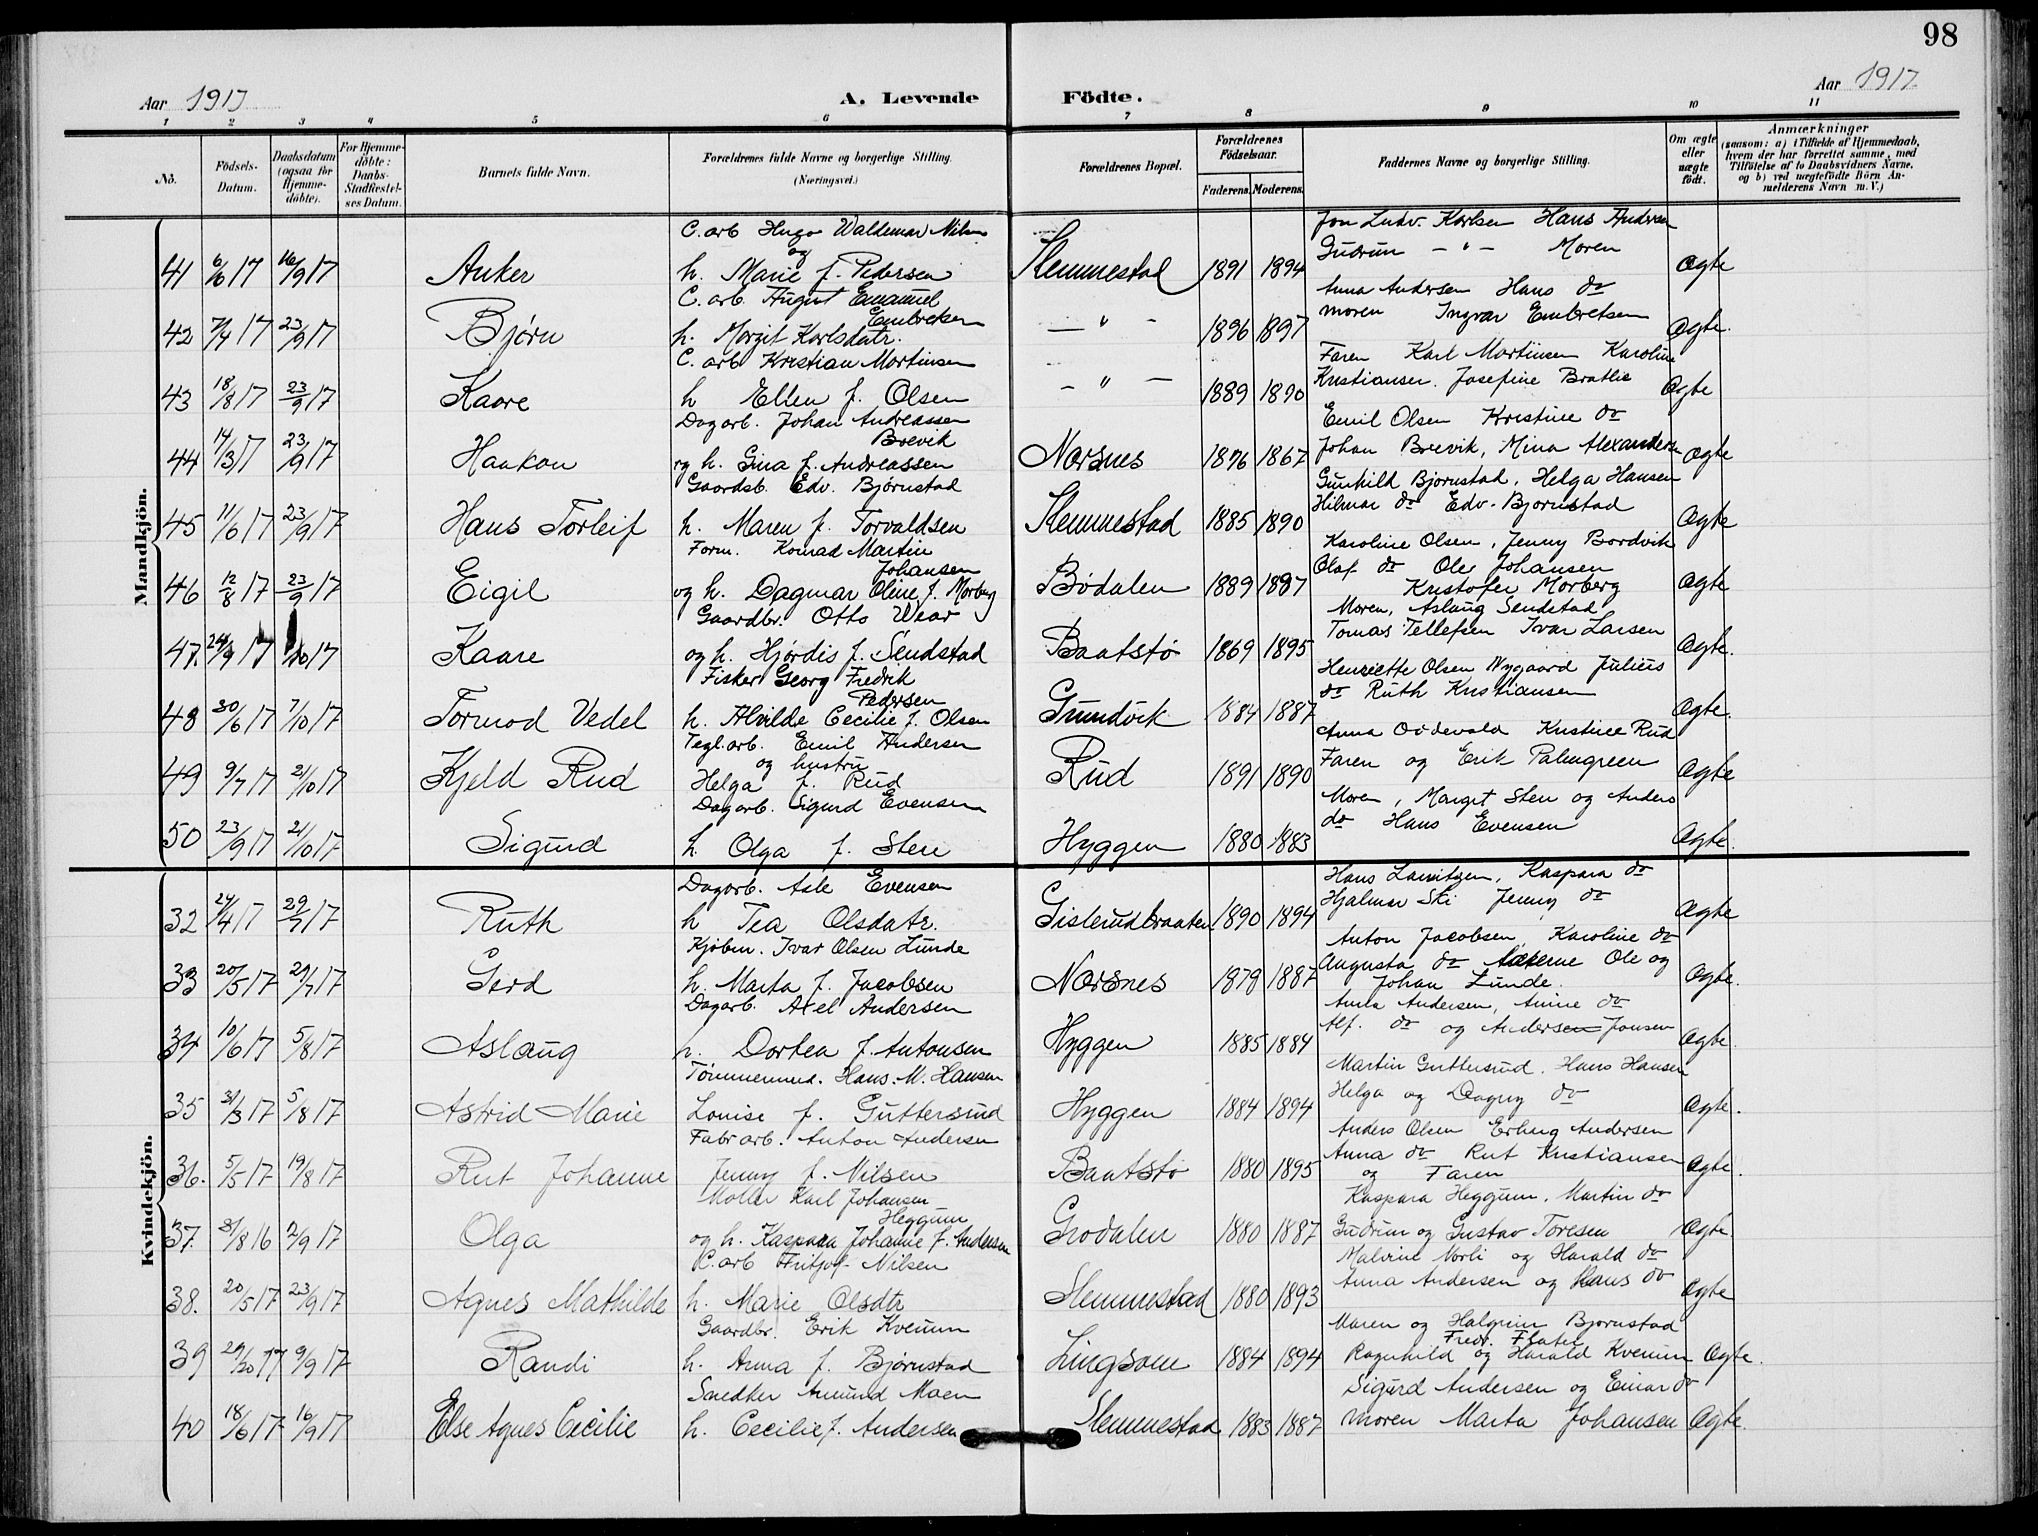 98
Aar 1917
A. Levende Födte.
Aar 1917
1 2 3 4 5 6 7 8 9 10 11
No.
Födsels-Datum.
Daabsdatum (ogsaa for Hjemme-döbte).
For Hjemme-döbte: Daabs-Stadfæstel-ses Datum.
Barnets fulde Navn.
Forældrenes fulde Navne og borgerlige Stilling. (Næringsvei.)
Forældrenes Bopæl.
Forældrenes Födselsaar.
Faderens. Moderens.
Faddernes Navne og borgerlige Stilling.
Om ægte eller uægte födt.
Anmærkninger
(saasom: a) i Tilfælde af Hjemmedaab, hvem der har forrettet samme, med Tilföielse af to Daabsvidners Navne, og b) ved uægtefödte Börn An-melderens Navn m. V.)
Mandkjön.
C. arb Hugo Waldemar Nilsen Jon Ludv. Karlsen Hans Andersen
og Gudrun - " - Moren
41 6/6 17 16/9 17 Anker h. Marie f. Pedersen Slemmestad 1891 1894 Ægte
C. arb. August Emanuel Embretsen Anna Andersen Hans do
42 7/4 17 23/9 17 Bjørn h. Margit Karlsdatr. - " - 1896 1897 moren Ingvar Embretsen Ægte.
C. arb Kristian Martinsen Faren Karl Martinsen Karoline
43 18/8 17 23/9 17 Kaare h Ellen f. Olsen - " - 1889 1890 Kristiansen. Josefine Bratlie Ægte
Dagarb. Johan Andreassen Brevik Emil Olsen Kristine do
44 14/3 17 23/9 17 Haakon og h. Gina f. Andreassen Nærsnes 1876 1867 Johan Brevik, Mina Alexandersen Ægte
Gaardsb. Edv. Bjørnstad Gunhild Bjørnstad, Helga Hansen
45 11/6 17 23/9 17 Hans Torleif h. Maren f. Torvaldsen Slemmestad 1885 1890 Hilmar do Edv. Bjørnstad Ægte
Form. Konrad Martin Johansen Karoline Olsen, Jenny Bordvik
46 12/8 17 23/9 17 Eigil og h. Dagmar Oline f. Morberg Bødalen 1889 1897 Olaf do Ole Johansen Kristofer Morberg Ægte
Gaardbr. Otto Wear Moren, Aslaug Sendstad
47. 24/9 17 /10 17 Kaare og h. Hjørdis f. Sendstad Baatstø 1869 1895 Tomas Tellefsen Ivar Larsen Ægte.
Fisker Georg Fredrik Pedersen Henriette Olsen Nygaard Julius
48 30/6 17 7/10 17 Tormod Vedel h. Alvilde Cecilie f. Olsen Grundvik 1884 1887 do Ruth Kristiansen Ægte.
Tegl. arb. Emil Andersen Anna Oddevald Kristine Rud
og hustru
49 9/7 17 21/10 17 Kjeld Rud Helga f. Rud Rud 1891 1890 Faren og Erik Palmgreen Ægte
Dagarb. Sigurd Evensen Moren, Margit Sten og Anders
50 23/9 17 21/10 17 Sigurd h. Olga f. Sten Hyggen 1880 1883 do Hans Evensen Ægte.
Kvindekjön.
Dagarb. Asle Evensen Hans Lauritzen, Kaspara do
32 24/4 17 29/7 17 Ruth h Tea Olsdatr. Gisterudbraaten 1890 1894 Hjalmar Ski Jenny do Ægte
Kjøbm. Ivar Olsen Lunde Anton Jacobsen, Karoline do
33 20/5 17 29/7 17 Gerd h. Marta f. Jacobsen Nærsnes 1879 1887 Augusta do Ole og Johan Lunde. Ægte.
Dagarb. Axel Andersen Anna Andersen, Anine do
34 10/6 17 5/8 17 Aslaug h. Dortea f. Antonsen Hyggen 1885 1884 Alf. do og Andersen Jonsen Ægte.
Tømmermd. Hans M. Hansen Martin Guttersrud. Hans Hansen
35 31/3 17 5/8 17 Astrid Marie Louise f. Guttersrud Hyggen 1884 1894 Helga og Dagny do Ægte.
Fabr arb. Anton Andersen Anders Olsen Erling Andersen
36. 5/5 17 19/8 17 Rut Johanne Jenny f. Nilsen Baatstø 1880 1895 Anna do Rut Kristiansen og Faren Ægte.
Møller Karl Johansen Heggum Kaspara Heggum. Martin do
37. 31/8 16 2/9 17 Olga og h. Kaspara Johanne f. Andersen Grodalen 1880 1887 Gudrun og Gustav Toresen Ægte.
C. arb Fritjof Nilsen Malvine Norli og Harald do
38. 20/5 17 23/9 17 Agnes Mathilde h. Marie Olsdtr Slemmestad 1880 1893 Anna Andersen og Hans do Ægte
Gaardbr. Erik Kvenum Maren og Halgrim Bjørnstad
Fredr. Flater
39 29/ 17 9/9 17 Randi h. Anna f. Bjørnstad Lingsom 1884 1894 Ragnhild og Harald Kvenum Ægte.
Snedker Amund Moen Sigurd Andersen og Einar do
40 18/6 17 16/9 17 Else Agnes Cecilie h. Cecilie f. Andersen Slemmestad 1883 1887 Moren Marta Johansen Ægte.